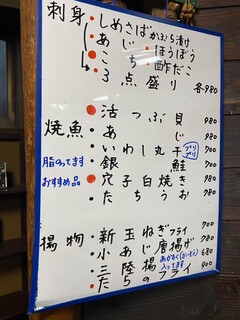 刺身 しめさばかぶら漬け
あじ ・ほうぼう
こち ・酢だこ
3点盛り 各980
焼魚 ・活つぶ貝 980
・あじ 780
・いわし丸干 700
脂のってます ・銀鮭 700
おすすめ品 ・穴子白焼き 980
・たちうお 780
揚物 ・新玉ねぎフライ 700
・小あじ唐揚げ 780
・三陸揚 680
入ってます
・たらのフライ 900